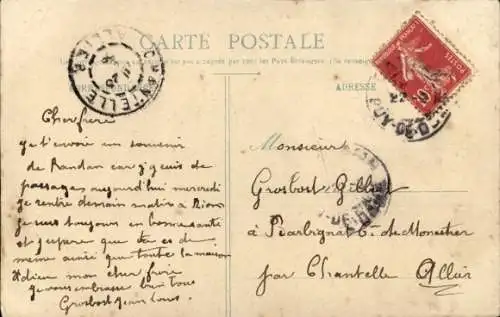 CARTE POSTALE
ADRESSE
CHANTELLE
ALLIER
Cher frère
je t'envoie un souvenir
de Randan car je suis de
passages aujourd'hui mercredi
je rentre demain matin a Riom
je suis toujours en bonne santé
et j'espere que tu es de
meme ainsi que toute la maison
Adieu mon cher frère
je vous embrasse bien tous
Grosbost
Monsieur
Grosbost Gilbert
à de Monestier
par Chantelle Allier